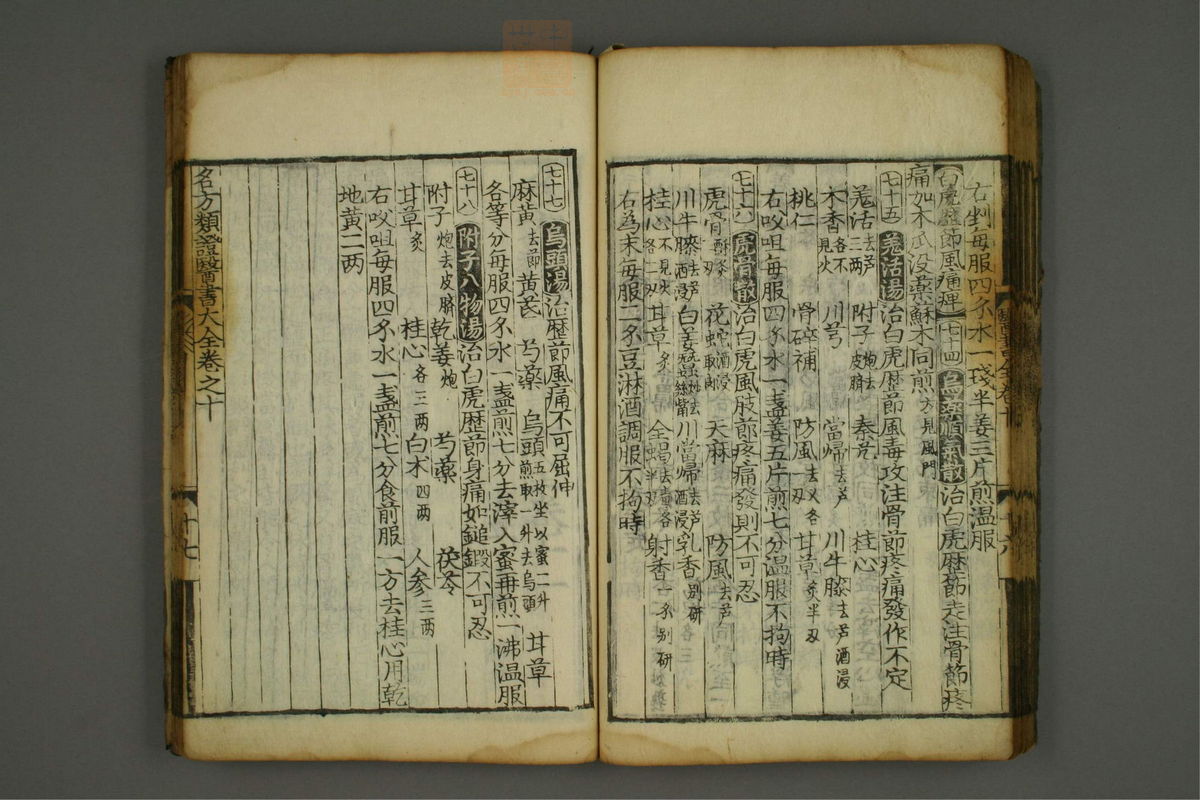 右剉每服四錢水一琖半姜三片煎温服
白虎歷節風痛痺 七十四 烏藥順氣散 治白虎歷節走注骨節疼
痛加木瓜没藥蘇木同煎方見風門
七十五 羗活湯 治白虎歷節風毒攻注骨節疼痛發作不定
羗活去芦三两 附子炮去皮臍 秦艽 桂心
木香各不見火 川芎 當帰去芦 川牛膝去芦酒浸
桃仁 骨碎補 防風去叉各一刄 甘草炙半刄
右㕮咀每服四錢水一盞姜五片煎七分温服不拘時
七十六 虎骨散 治白虎風肢莭疼痛發則不可忍
虎骨酥炙二刄 花蛇酒浸取肉 天麻 防風去芦
川牛膝去芦酒浸 白姜蚕炒去絲觜 川當帰去芦酒浸 乳香别研
桂心不見火各一刄 甘草炙 全蝎去毒各半刄 射香一錢别研
右為末每服二錢豆淋酒調服不拘時
七十七 烏頭湯 治歷莭風痛不可屈伸
麻黄去莭 黄芪 芍藥 烏頭五枚㕮以蜜二升煎取一升去烏頭 甘草
各等分每服四錢水一盞煎七分去滓入蜜再煎一沸温服
七十八 附子八物湯 治白虎歷節身痛如鎚鍜不可忍
附子炮去皮臍 乾姜炮 芍藥 茯苓
甘草炙 桂心各三两 白术四两 人参三两
右㕮咀每服四錢水一盞煎七分食前服一方去桂心用乾
地黄二两
名方類證醫書大全卷之十
十七